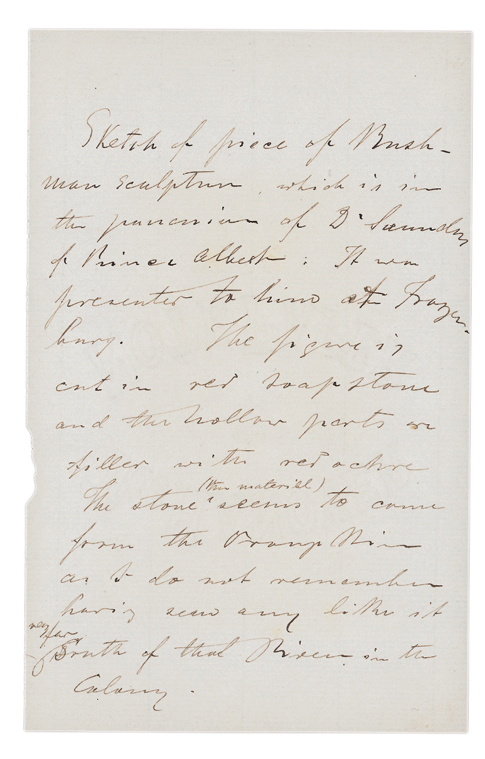 Sketch of piece of Bush-
man sculpture, which is in
the possession of Dr Saunders
of Prince Albert. It was
presented to him at Frazer-
burg. The figure is
cut in red soapstone
and the hollow parts are
filled with red ochre
The stone (this material) seems to come
from the Orange River
as I do not remember
having seen any like it
very far
South of that River in the
Colony.